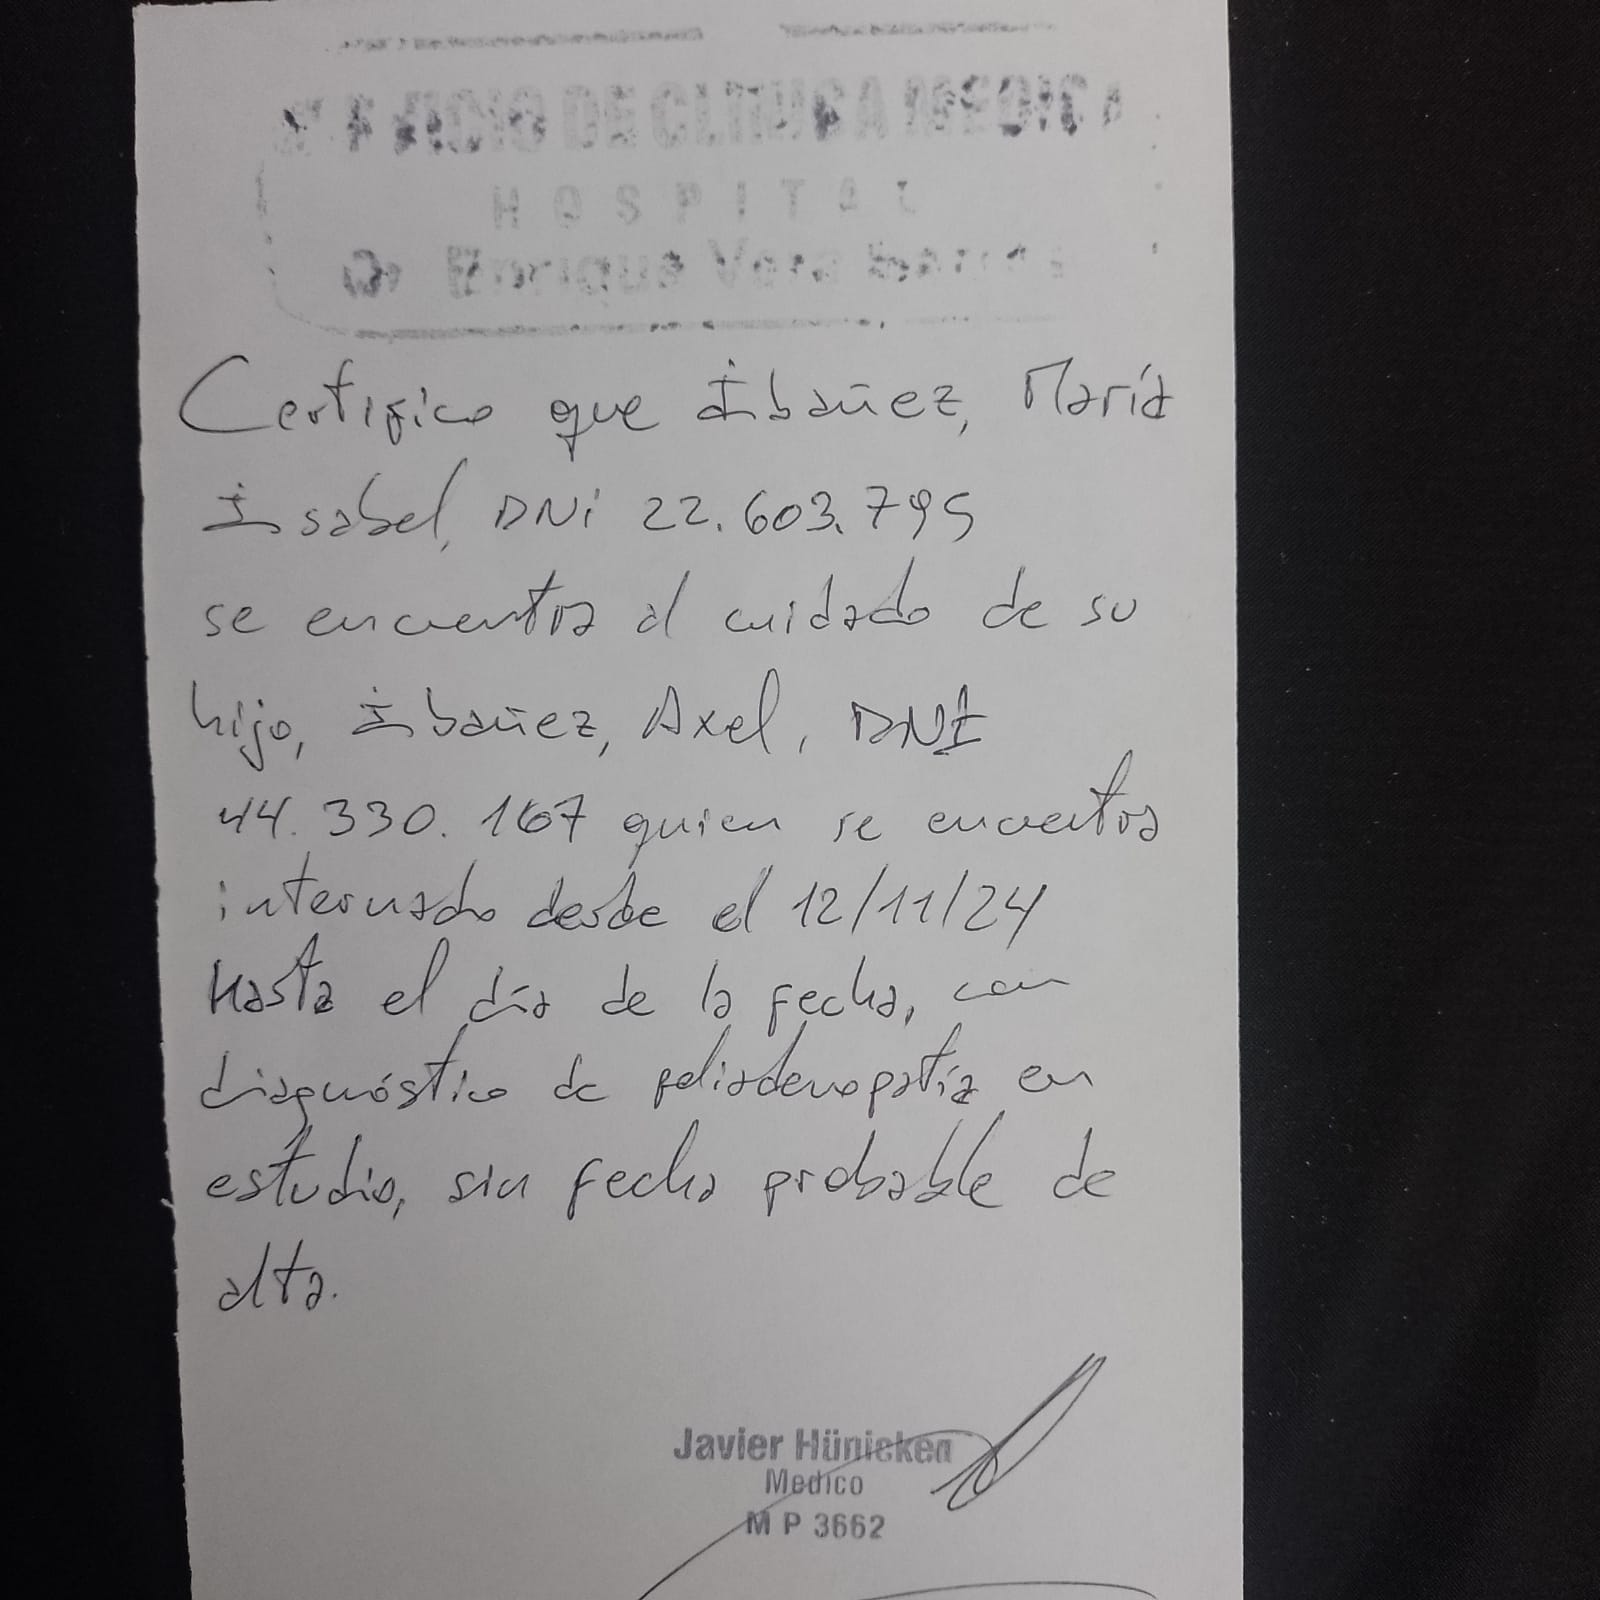 SERVICIO DE CLINICA MEDICA
HOSPITAL
Dr Enrique Vera Barros
Certifico que Ibañez, María
Isabel, DNi 22.603.795
se encuentra al cuidado de su
hijo, Ibañez, Axel, DNI
44.330.167 quien se encuentra
internado desde el 12/11/24
Hasta el día de la fecha, con
diagnóstico de poliadenopatía en
estudio, sin fecha probable de
alta.
Javier Hünicken
Medico
M P 3662